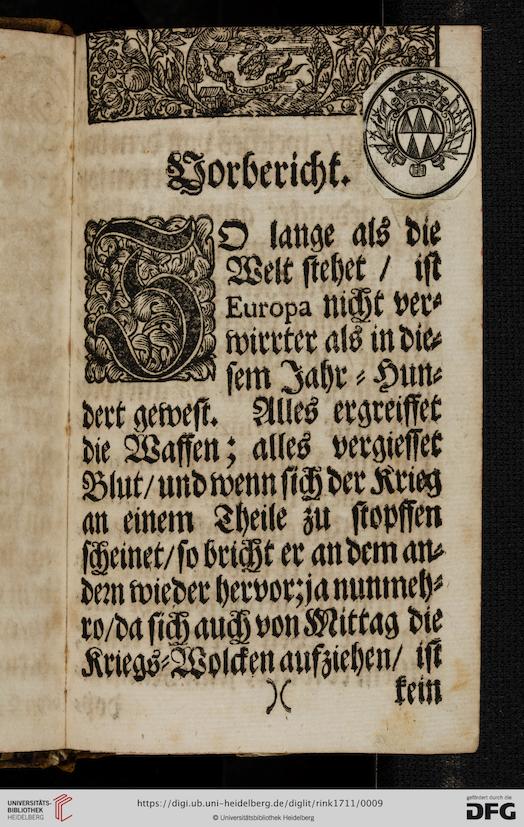 Vorbericht.
SO lange als die
Welt stehet / ist
Europa nicht ver-
wirrter als in die-
sem Jahr-Hun-
dert gewest. Alles ergreiffet
die Waffen; alles vergiesset
Blut/ und wenn sich der Krieg
an einem Theile zu stopffen
scheinet/ so bricht er an dem an-
dern wieder hervor; ja nunmeh-
ro/ da sich auch von Mittag die
Kriegs-Wolcken aufziehen/ ist
)(
kein
UNIVERSITÄTS-
BIBLIOTHEK
HEIDELBERG
https://digi.ub.uni-heidelberg.de/diglit/rink1711/0009
© Universitätsbibliothek Heidelberg
gefördert durch die
DFG